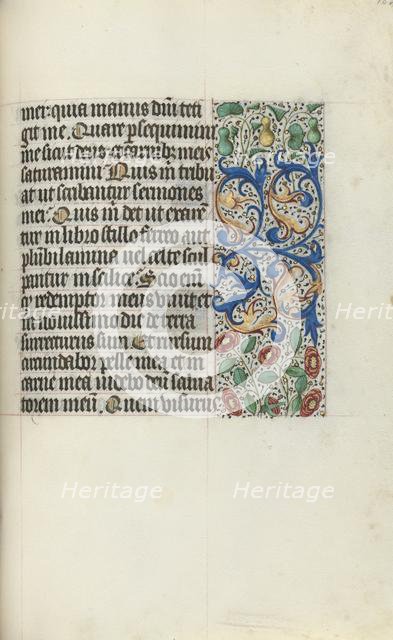 mer: quia manus dñi teti
git me. Quare persequimini
me sicut deus et carnibus meis
saturamini Quis m tribu
at ut scribantur sermones
mei. Quis m det ut exarē
tur in libro stillo ferreo aut
plūbi lamina vel celte scul
pantur in silice. Scio enī
q redemptor meus vivit et
in novissimo die de terra
surrecturus sum Et rursum
circundabor pelle mea et in
carne mea videbo deū salva
torem meū. Quem visurus
Heritage Heritage Heritage
Heritage Heritage
Heritage Heritage